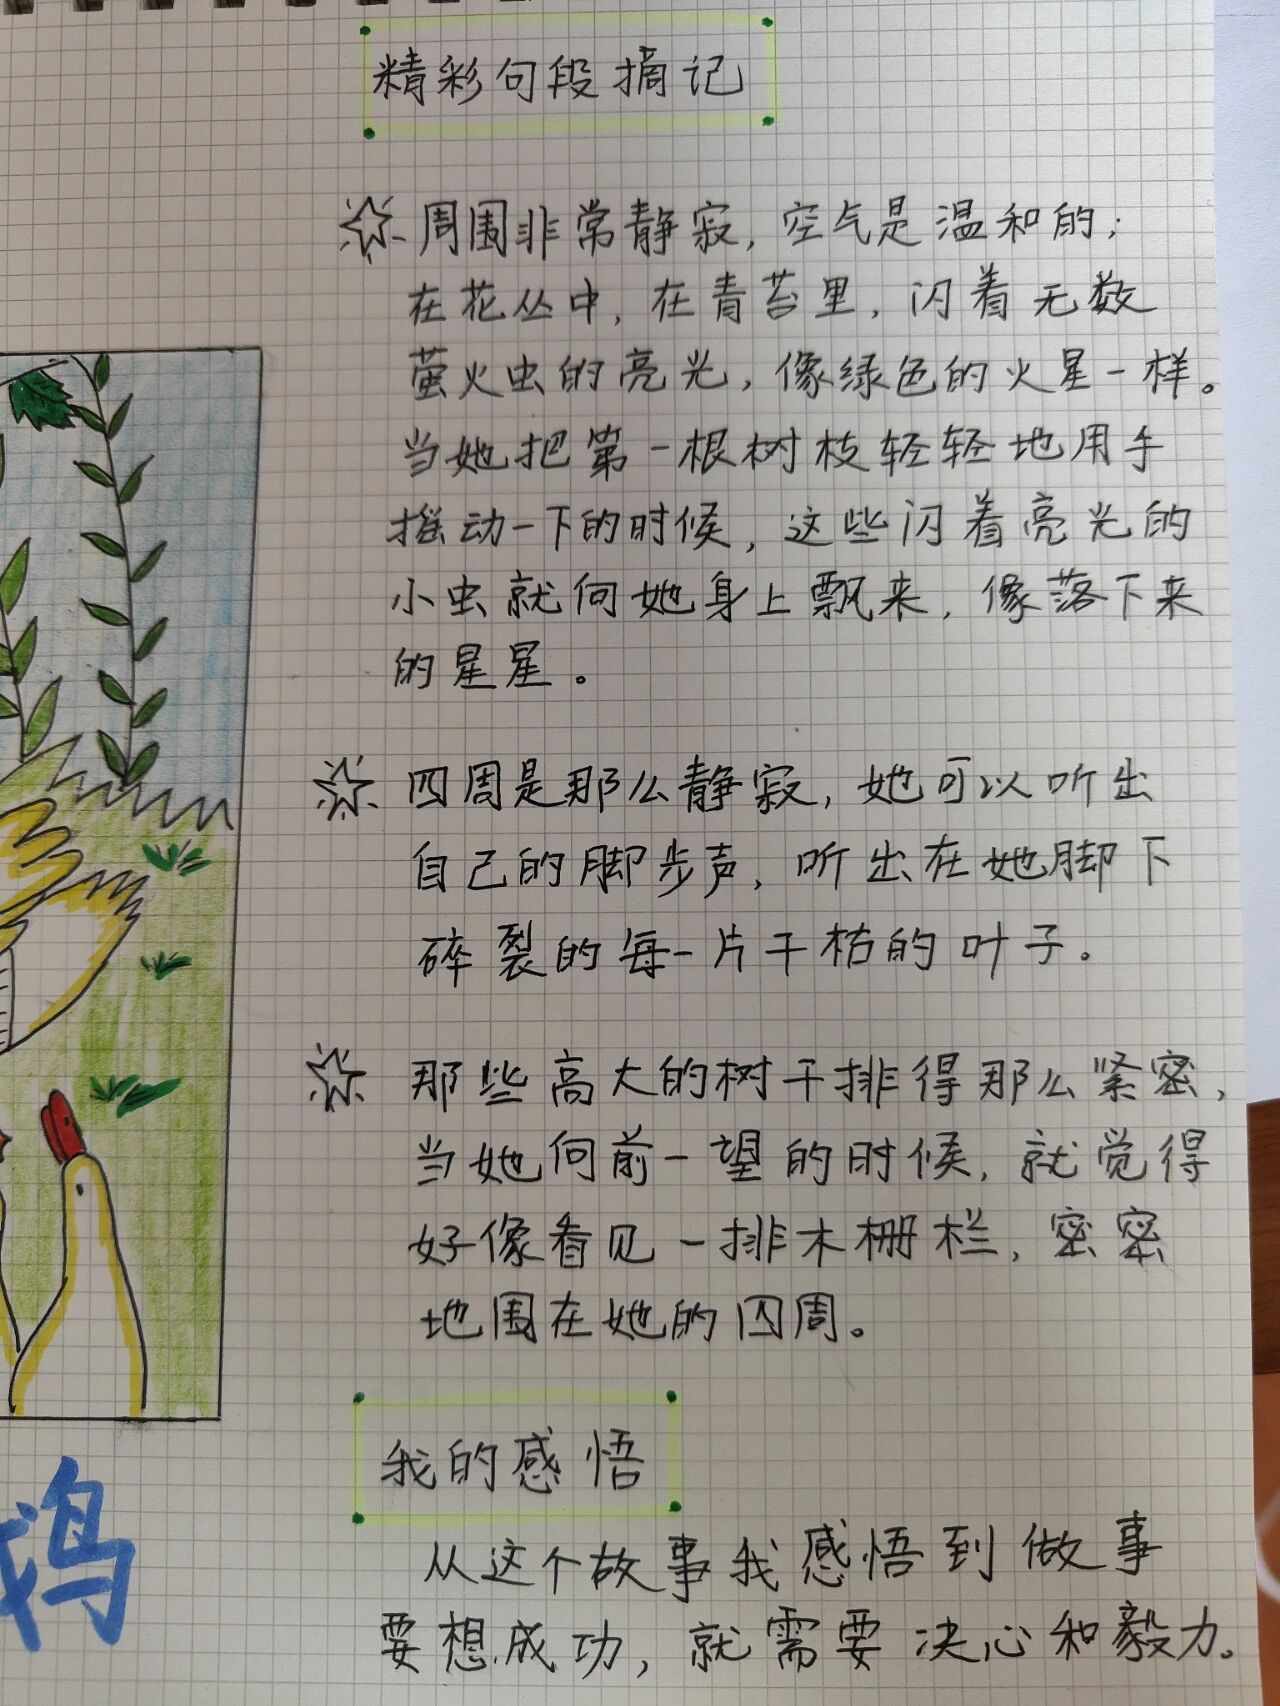 精彩句段摘记
周围非常静寂,空气是温和的;
在花丛中,在青苔里,闪着无数
萤火虫的亮光,像绿色的火星一样。
当她把第一根树枝轻轻地用手
摇动一下的时候,这些闪着亮光的
小虫就向她身上飘来,像落下来
的星星。
四周是那么静寂,她可以听出
自己的脚步声,听出在她脚下
碎裂的每一片干枯的叶子。
那些高大的树干排得那么紧密,
当她向前一望的时候,就觉得
好像看见一排木栅栏,密密
地围在她的四周。
我的感悟
从这个故事我感悟到做事
要想成功,就需要决心和毅力。
鹅